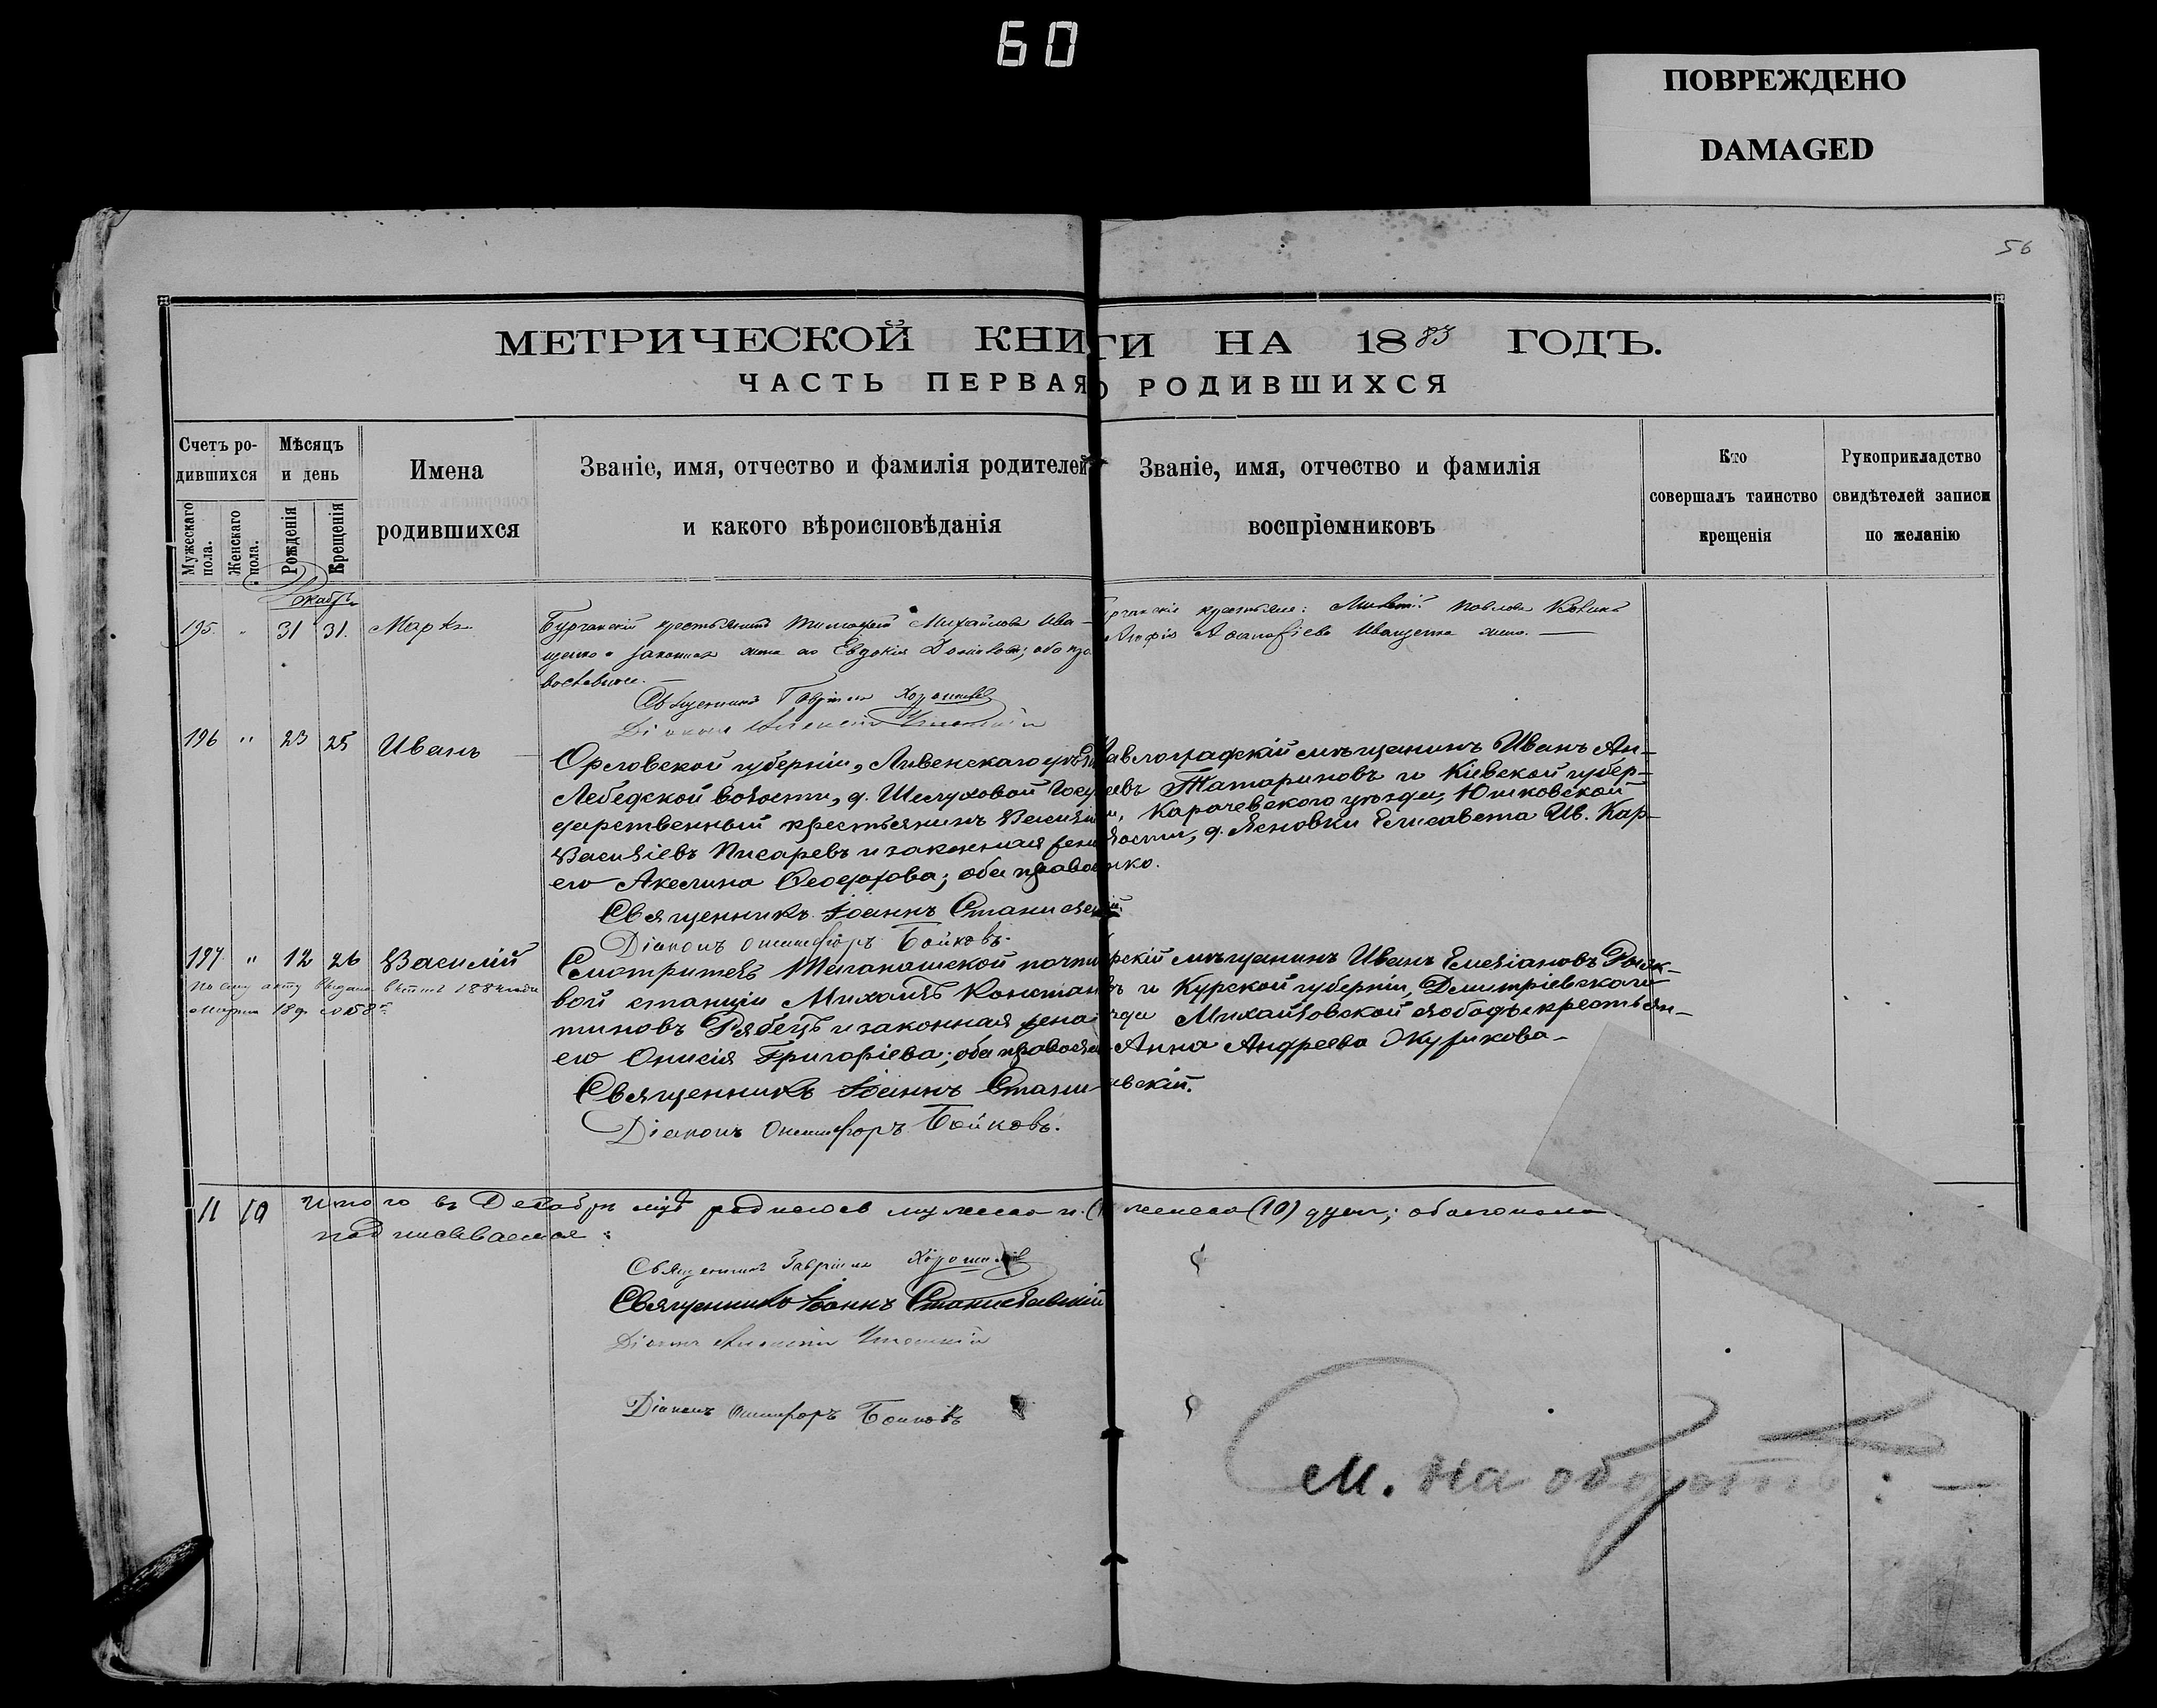 60
ПОВРЕЖДЕНО
DAMAGED
56
МЕТРИЧЕСКОЙ КНИГИ НА 1883 ГОДЪ.
ЧАСТЬ ПЕРВАЯ О РОДИВШИХСЯ
Счетъ ро-
дившихся
Мужескаго пола.
Женскаго пола.
Мѣсяцъ
и день
Рожденія
Крещенія
Имена
родившихся
Званіе, имя, отчество и фамилія родителей
и какого вѣроисповѣданія
Званіе, имя, отчество и фамилія
воспріемниковъ
Кто
совершалъ таинство
крещенія
Рукоприкладство
свидѣтелей записи
по желанію
Декабрь
195. " 31 31. Маркъ
Михайловъ Ива-
щенко и законная жена его Евдокія оба пра
вославные.
Священникъ Гавріилъ
Діаконъ Алексій
крестьяне: Павловъ
Иващенко жена.
196 " 23 25 Иванъ
Орловской губерніи, Ливенскаго уѣзд
Лебедской волости, д. Шелуховой Госу
дарственный крестьянинъ Василій
Васильевъ Писаревъ и законная жена
его Акелина Ѳеодотова; оба правос
Священникъ Іоаннъ Станиславскій.
Діаконъ Онисифоръ Бойковъ.
авлоградскій мѣщанинъ Иванъ Ан-
еевъ Татариновъ и Кіевской губер-
и, Карачевскаго уѣзда, Юшковской
лости, д. Ясновки Елисавета Ив. Кар-
нко.
197 " 12 26 Василій
По сему акту выдана 1884 года
Марта 18 д. за № 58
Смотритель почто
вой станціи Михаилъ Констан
тиновъ Рябецъ и законная жена
его Онисія Григоріева; оба правосла
Священникъ Іоаннъ Станиславскій.
Діаконъ Онисифоръ Бойковъ.
рскій мѣщанинъ Иванъ Емельяновъ
въ и Курской губерніи, Дмитріевскаго
зда Михайловской слободы крестьян-
Анна Андреева Жузикова-
11 10 Итого въ Декабрѣ родилось мужеска п. женска (10) душъ;
подписываемся:
Священникъ Гавріилъ
Священникъ Іоаннъ Станиславскій
Діаконъ Алексій
Діаконъ Онисифоръ Бойковъ
См. на оборотѣ: —